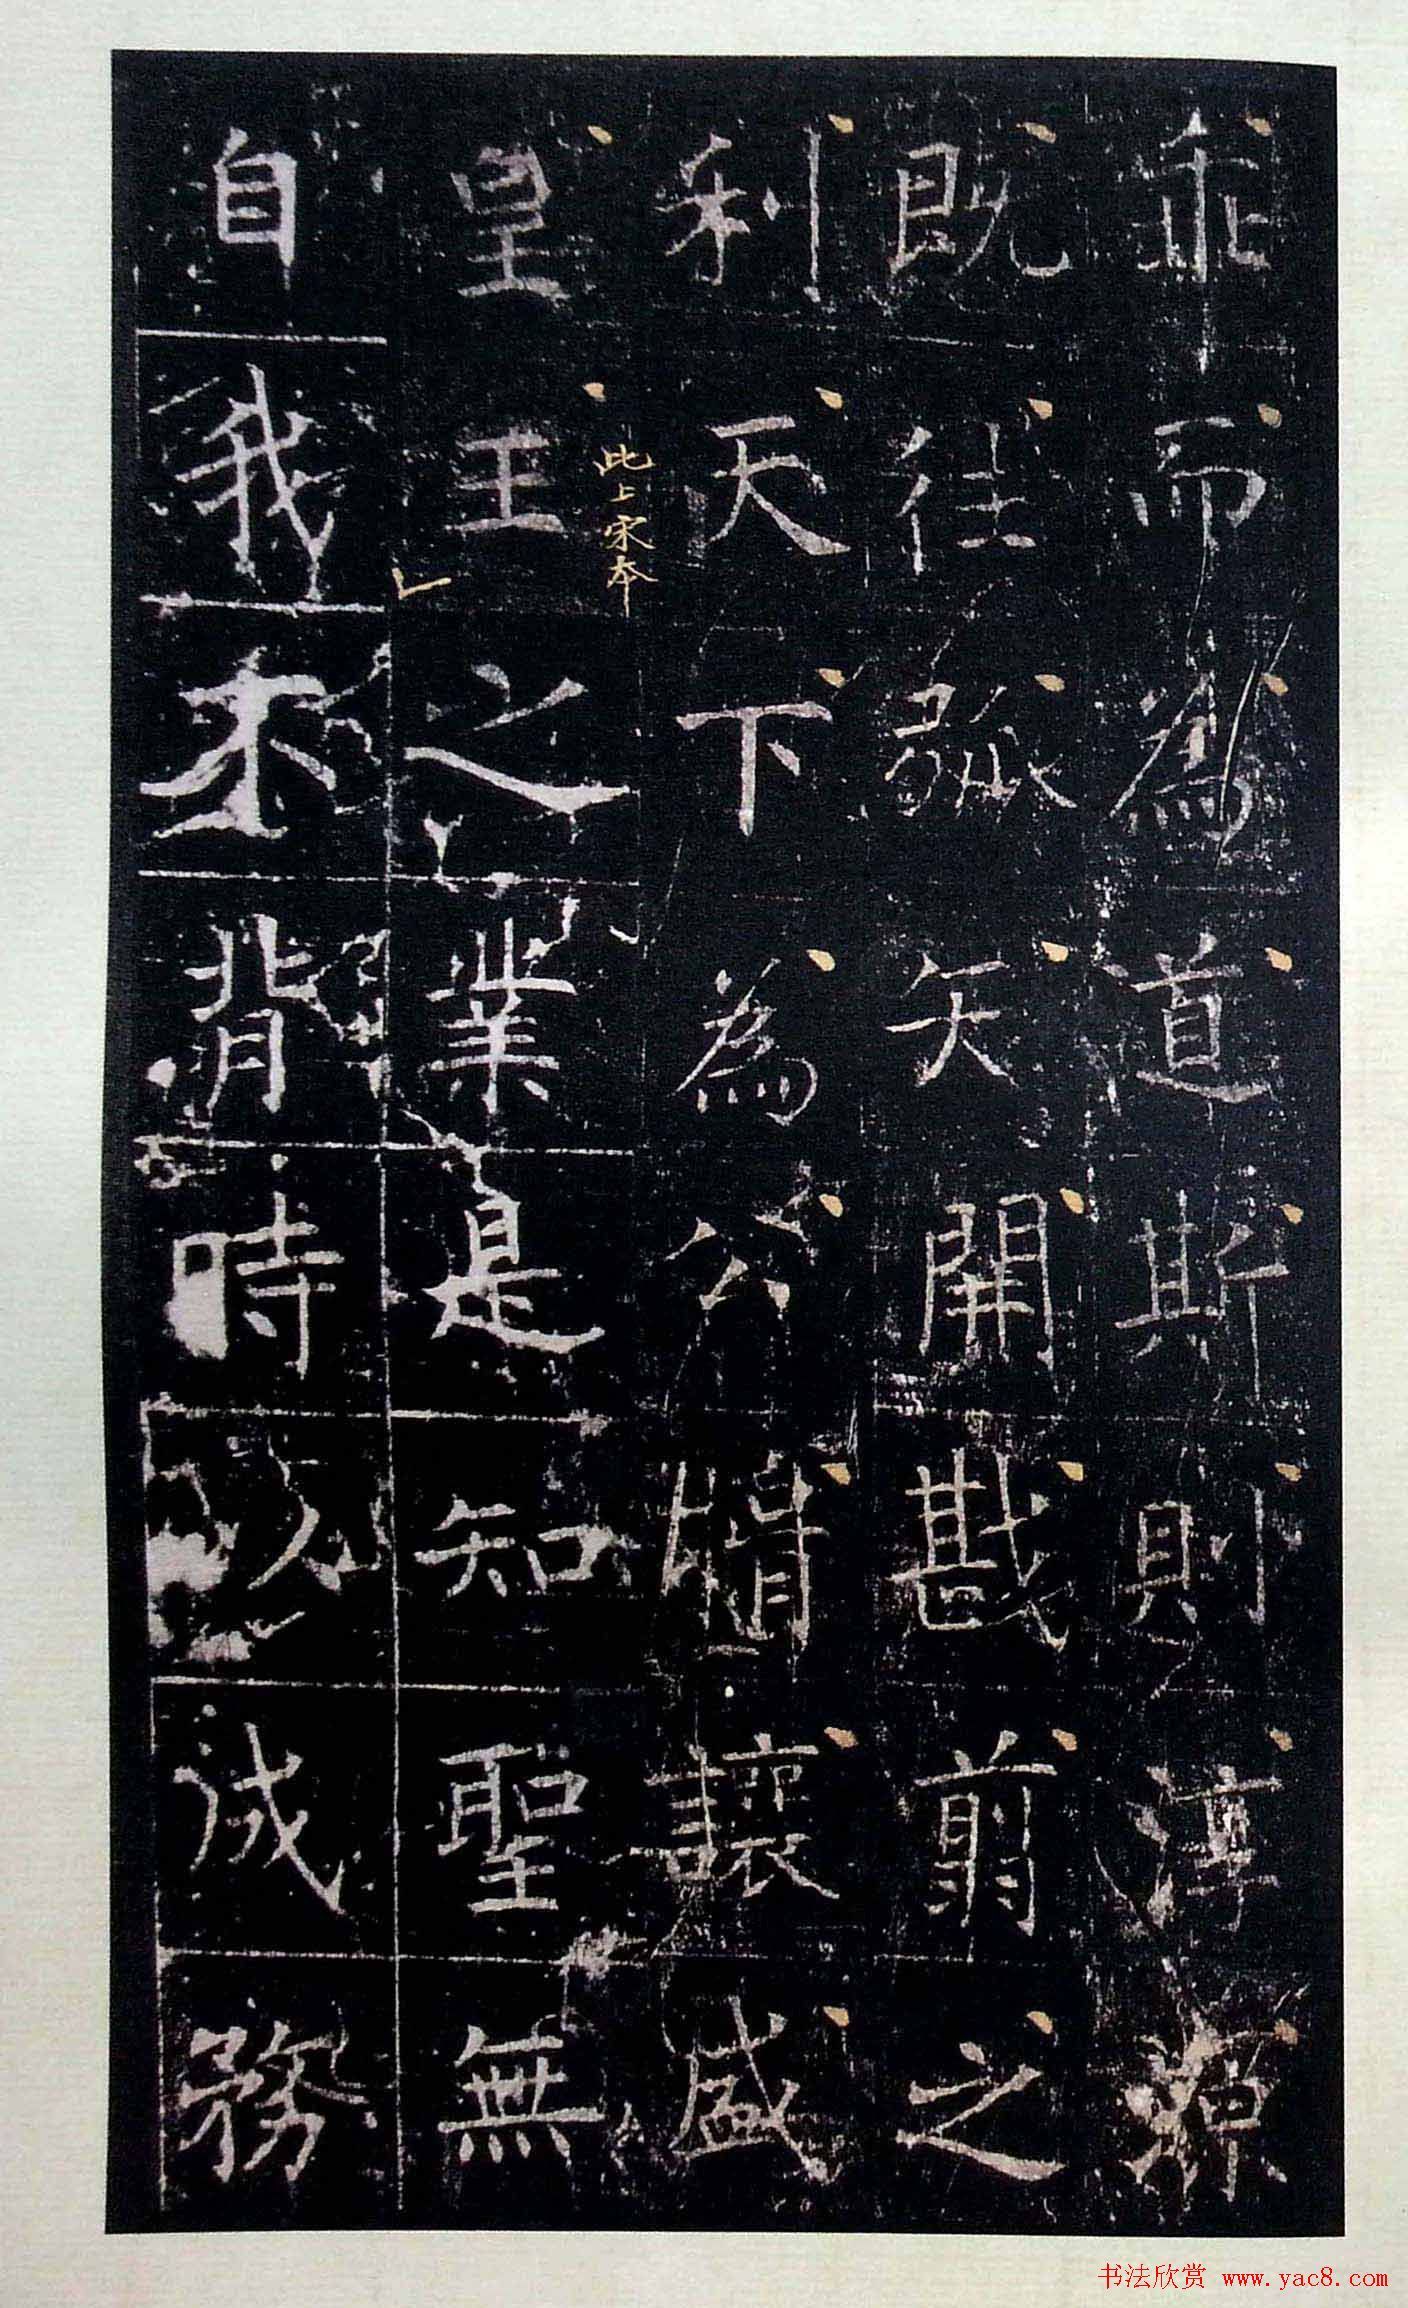 乖而為道斯則淳源
既往弧矢開戡翦之
利天下為公惜讓盛
此上宋本
皇王之業是知聖無
自我不背時以成務
书法欣赏 www.yac8.com